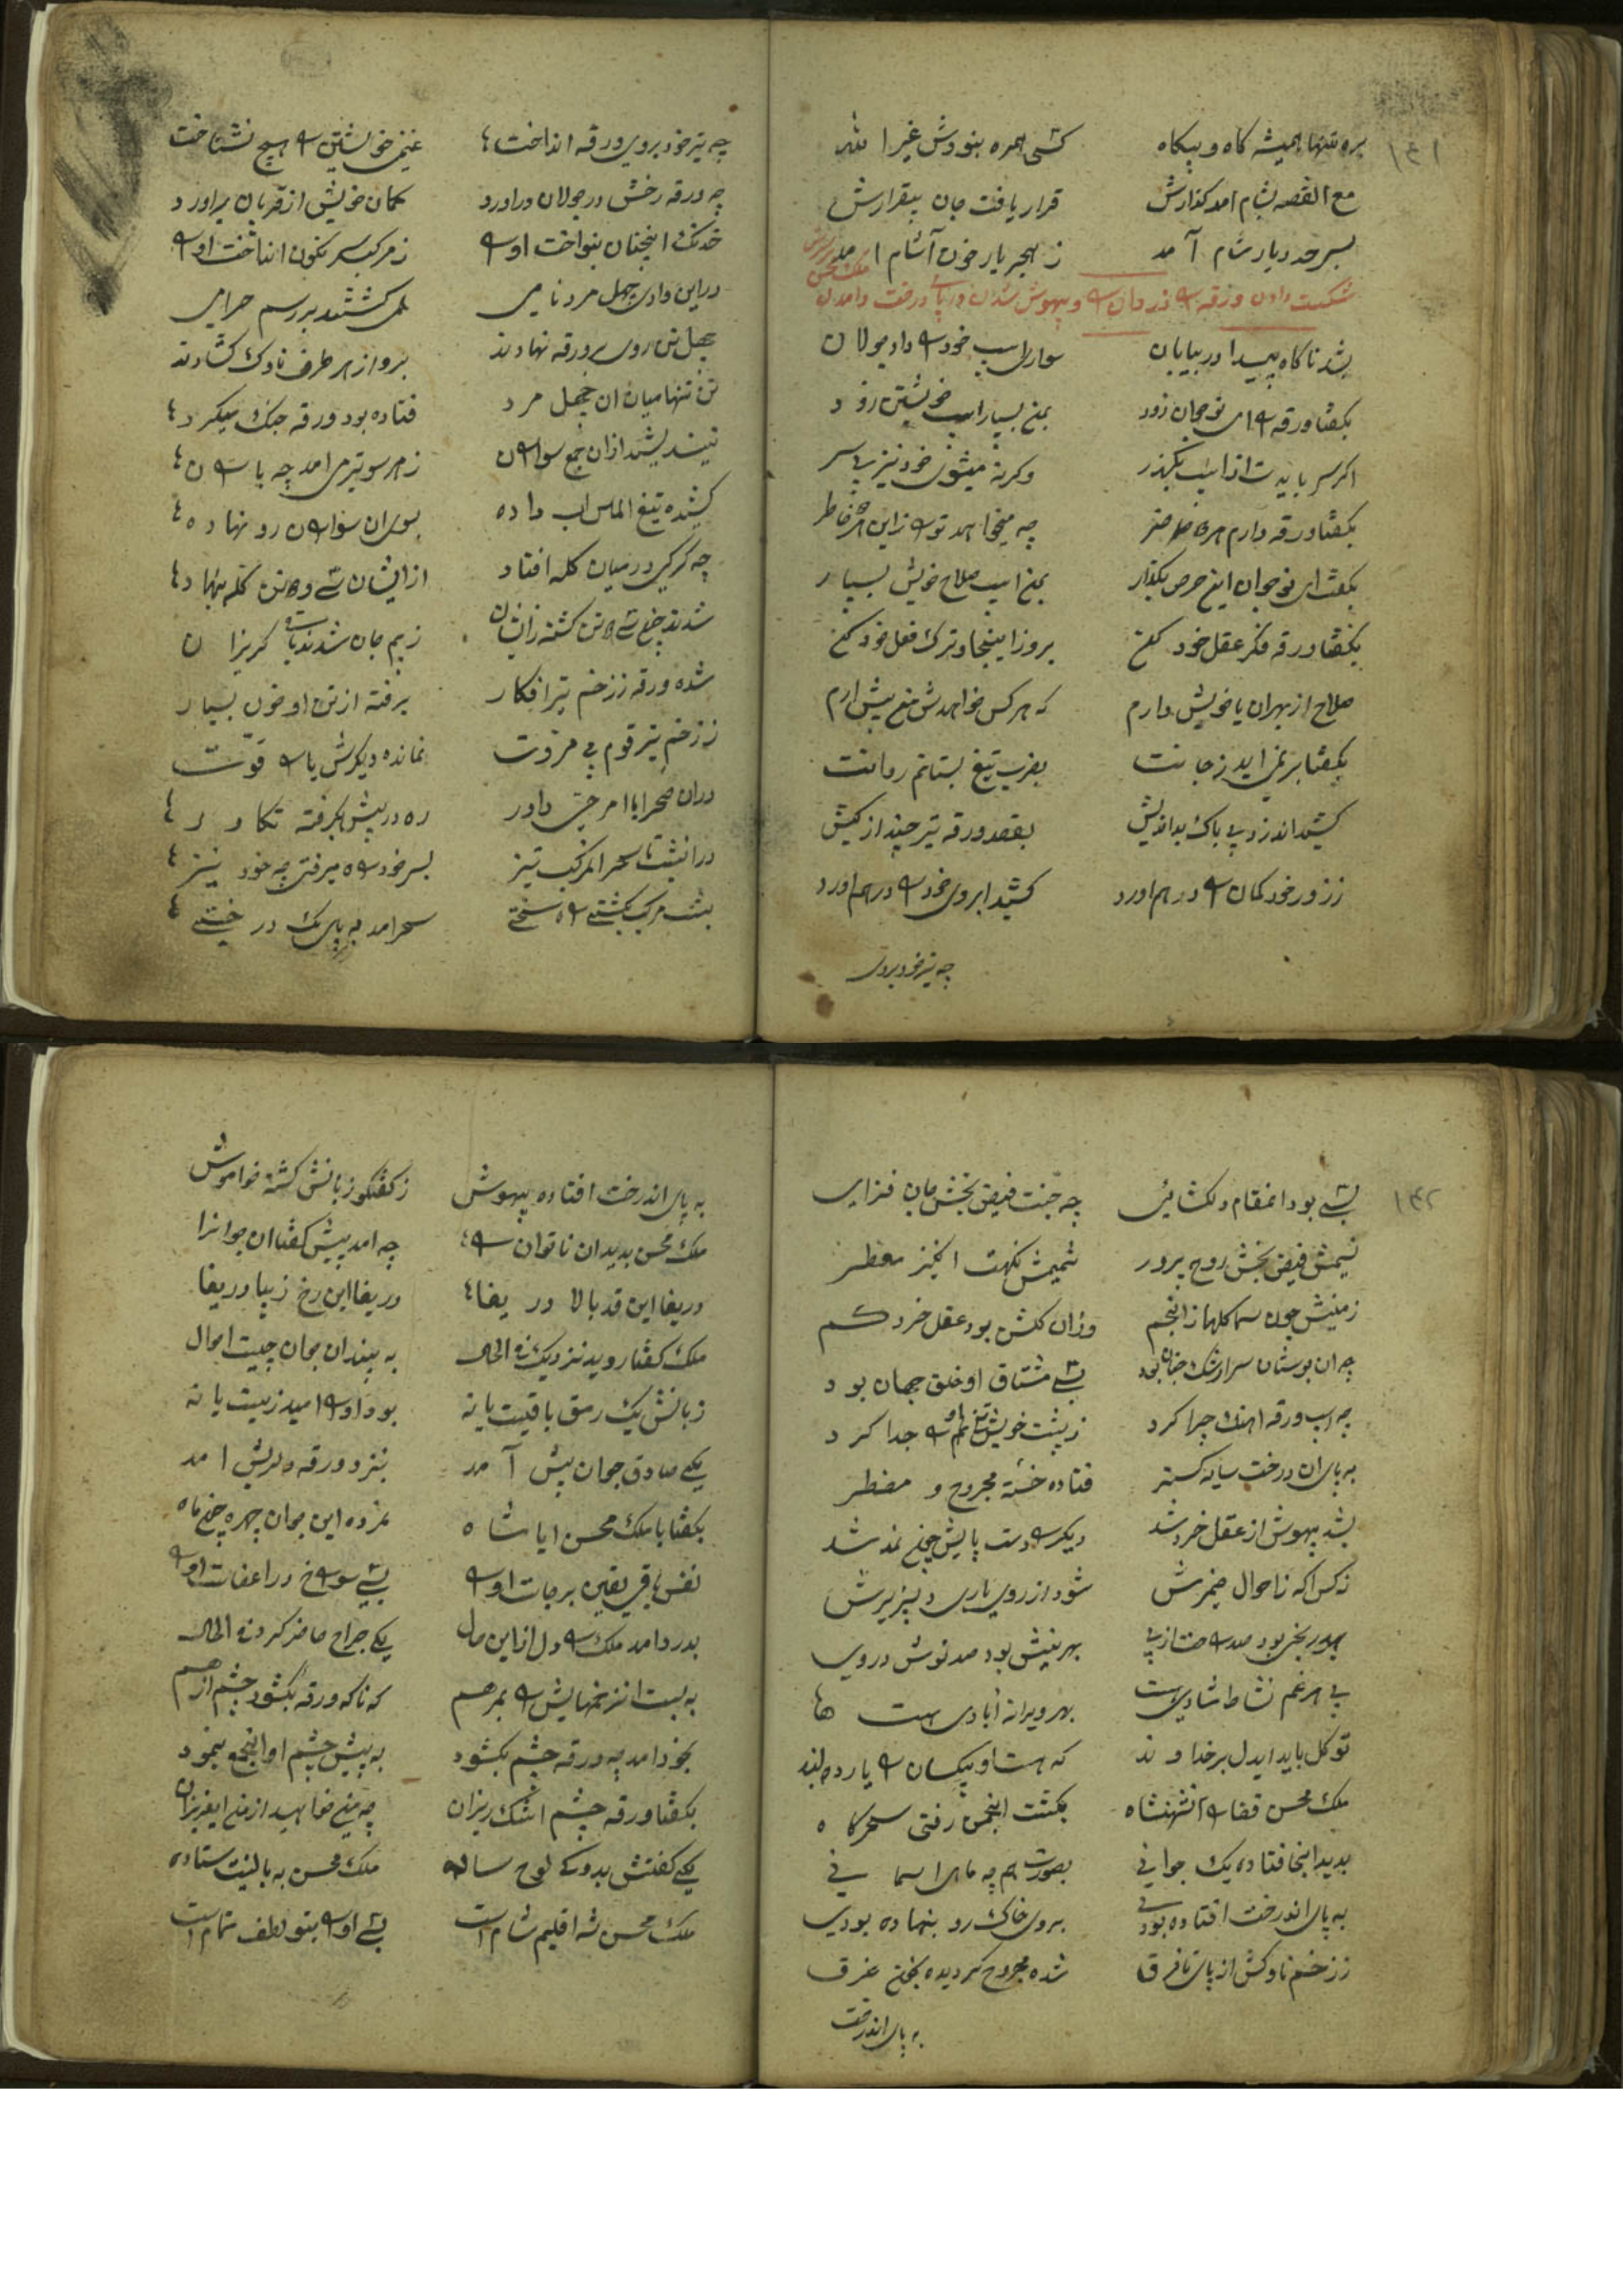 ۱۴۱
بره تنها همیشه کاه و بیکاه کسی همره بنودش غیر الله
مع القصه بشام امد کذارش قرار یافت جان بیقرارش
بسرحد دیار شام آمد ز هجر یار خون آشام امد
شکست دادن ورقه را دزدان را و بیهوش شدن در پای درخت و امدن ملک محسن
بشد ناکاه پیدا در بیابان سواری اسپ خود را داد جولان
بکفتا ورقه را ای نوجوان زود بمن بسپار اسپ خویشتن زود
اکر سر بایدت از اسپ بکذر وکرنه میشوی خود نیز بی سر
بکفتا ورقه دارم هر خاطر چه میخواهد تو را زاین هر خاطر
بکفت ای نوجوان این حرص بکذار بمن اسپ صلاح خویش بسپار
بکفتا ورقه فکر عقل خود کن برو زاینجا و ترک فعل خود کن
صلاح از بهر ان با خویش دارم که هر کس خواهدش من پیش ارم
بکفتا بر نمی اید ز جانت بضرب تیغ بستانم روانت
کشید اندزد بی باک بداندیش بقصد ورقه تیر چند از کیش
ز زور خود کمان را در هم اورد کشید ابروی خود را در هم اورد
چه تیر خود بروی
چه تیر خود بروی ورقه انداخت غنیم خویشتن را هیچ نشناخت
چه ورقه رخش در جولان دراورد کمان خویش از قربان براورد
خدنک اینچنان بنواخت او را ز مرکب سرنکون انداخت او را
در این وادی چهل مرد نامی همی کشتند بر رسم حرامی
چهل تن روی بر ورقه نهادند برو از هر طرف ناوک کشادند
تن تنها میان ان چهل مرد فتاده بود ورقه جنک میکرد
نیندیشید ازان جمع سواران ز هر سو تیر می امد چه باران
کشیده تیغ الماس اب داده بسوی ان سواران رو نهاده
چه کرکی در میان کله افتاد از ایشان سی و تن کله بنهاد
شدند چون سی تن کشته زایشان ز بیم جان شدند کریزان
شده ورقه ز زخم تیر افکار برفته از تن او خون بسیار
ز زخم تیر قوم بی مروت نمانده دیکرش یارا قوت
دران صحرا با امر حق داور ره در پیش بکرفته تکاور
درانشب تا سحر المرکب تیز بسر خود راه میرفتی چه خود نیز
بشب مرکب بکشتی راه سختی سحر امد به پای یک درختی
۱۴۲
بسی بود انمقام دلکشائی چه جنت فیض بخش جان فزای
نسیمش فیض بخش روح پرور شمیمش نکهت انکیز معطر
زمینش چون سما کلها ز انجم وزان کلش بود عقل خرد کم
چه ان بوستان سرا رشک جنان بود بسی مشتاق او خلق جهان بود
چه اسپ ورقه اهنک چرا کرد ز پشت خویش او را جدا کرد
به پای ان درخت سایه کستر فتاده خسته مجروح و مضطر
بشد بیهوش از عقل خرد شد دیکر را دست پایش چون نمد شد
نه کس اکه ز احوال ضمیرش شود از روی یاری دلپذیرش
بهر رنجی بود صد راحت از پی بهر نیشش بود صد نوش در وی
پی هر غم نشاط شادی هست بهر ویرانه آبادی هست
توکل باید ایدل بر خداوند که هست او بیکسان را یار دلبند
ملک محسن قضا را انشهنشاه بکشت انچمن رفتی سحرکاه
بدید انجا فتاده یک جوانی بصورت هم چه ماه اسمانی
به پای اندرخت افتاده بودی بروی خاک رو بنهاده بودی
ز زخم ناوکش از پای تا فرق شده مجروح کردیده بخون غرق
به پای اندرخت
به پای اندرخت افتاده بیهوش ز کفتکو زبانش کشته خواموش
ملک محسن بدید ان ناتوان را چه امد پیش کفتا ان جوانرا
دریغا این قد بالا دریغا دریغا این رخ زیبا دریغا
ملک کفتا روید نزدیک فی الحال به بینید ان جوان چیست احوال
زبانش یک رمق باقیست یا نه بود او را امید زیست یا نه
یکی صادق جوان پیش آمد بنزد ورقه دلریش امد
بکفتا با ملک محسن ایا شاه نمرده این جوان چهره چون ماه
نفس باقی یقین بر جاست او را بسی سوراخ در اعضاست او را
بدرد امد ملک را دل از این حال یکی جراح حاضر کرد فی الحال
به بست انزخمهایش را بمرهم که ناکه ورقه بکشود چشم از هم
بخود امد چه ورقه چشم بکشود به پیش چشم او انجمع بنمود
بکفتا ورقه چشم اشک ریزان چه میخواهید از من ای عزیزان
یکی کفتش بدو کای لوح ساده ملک محسن به بالینت ستاده
ملک محسن شه اقلیم شام است بسی او را بتو لطف تمام است